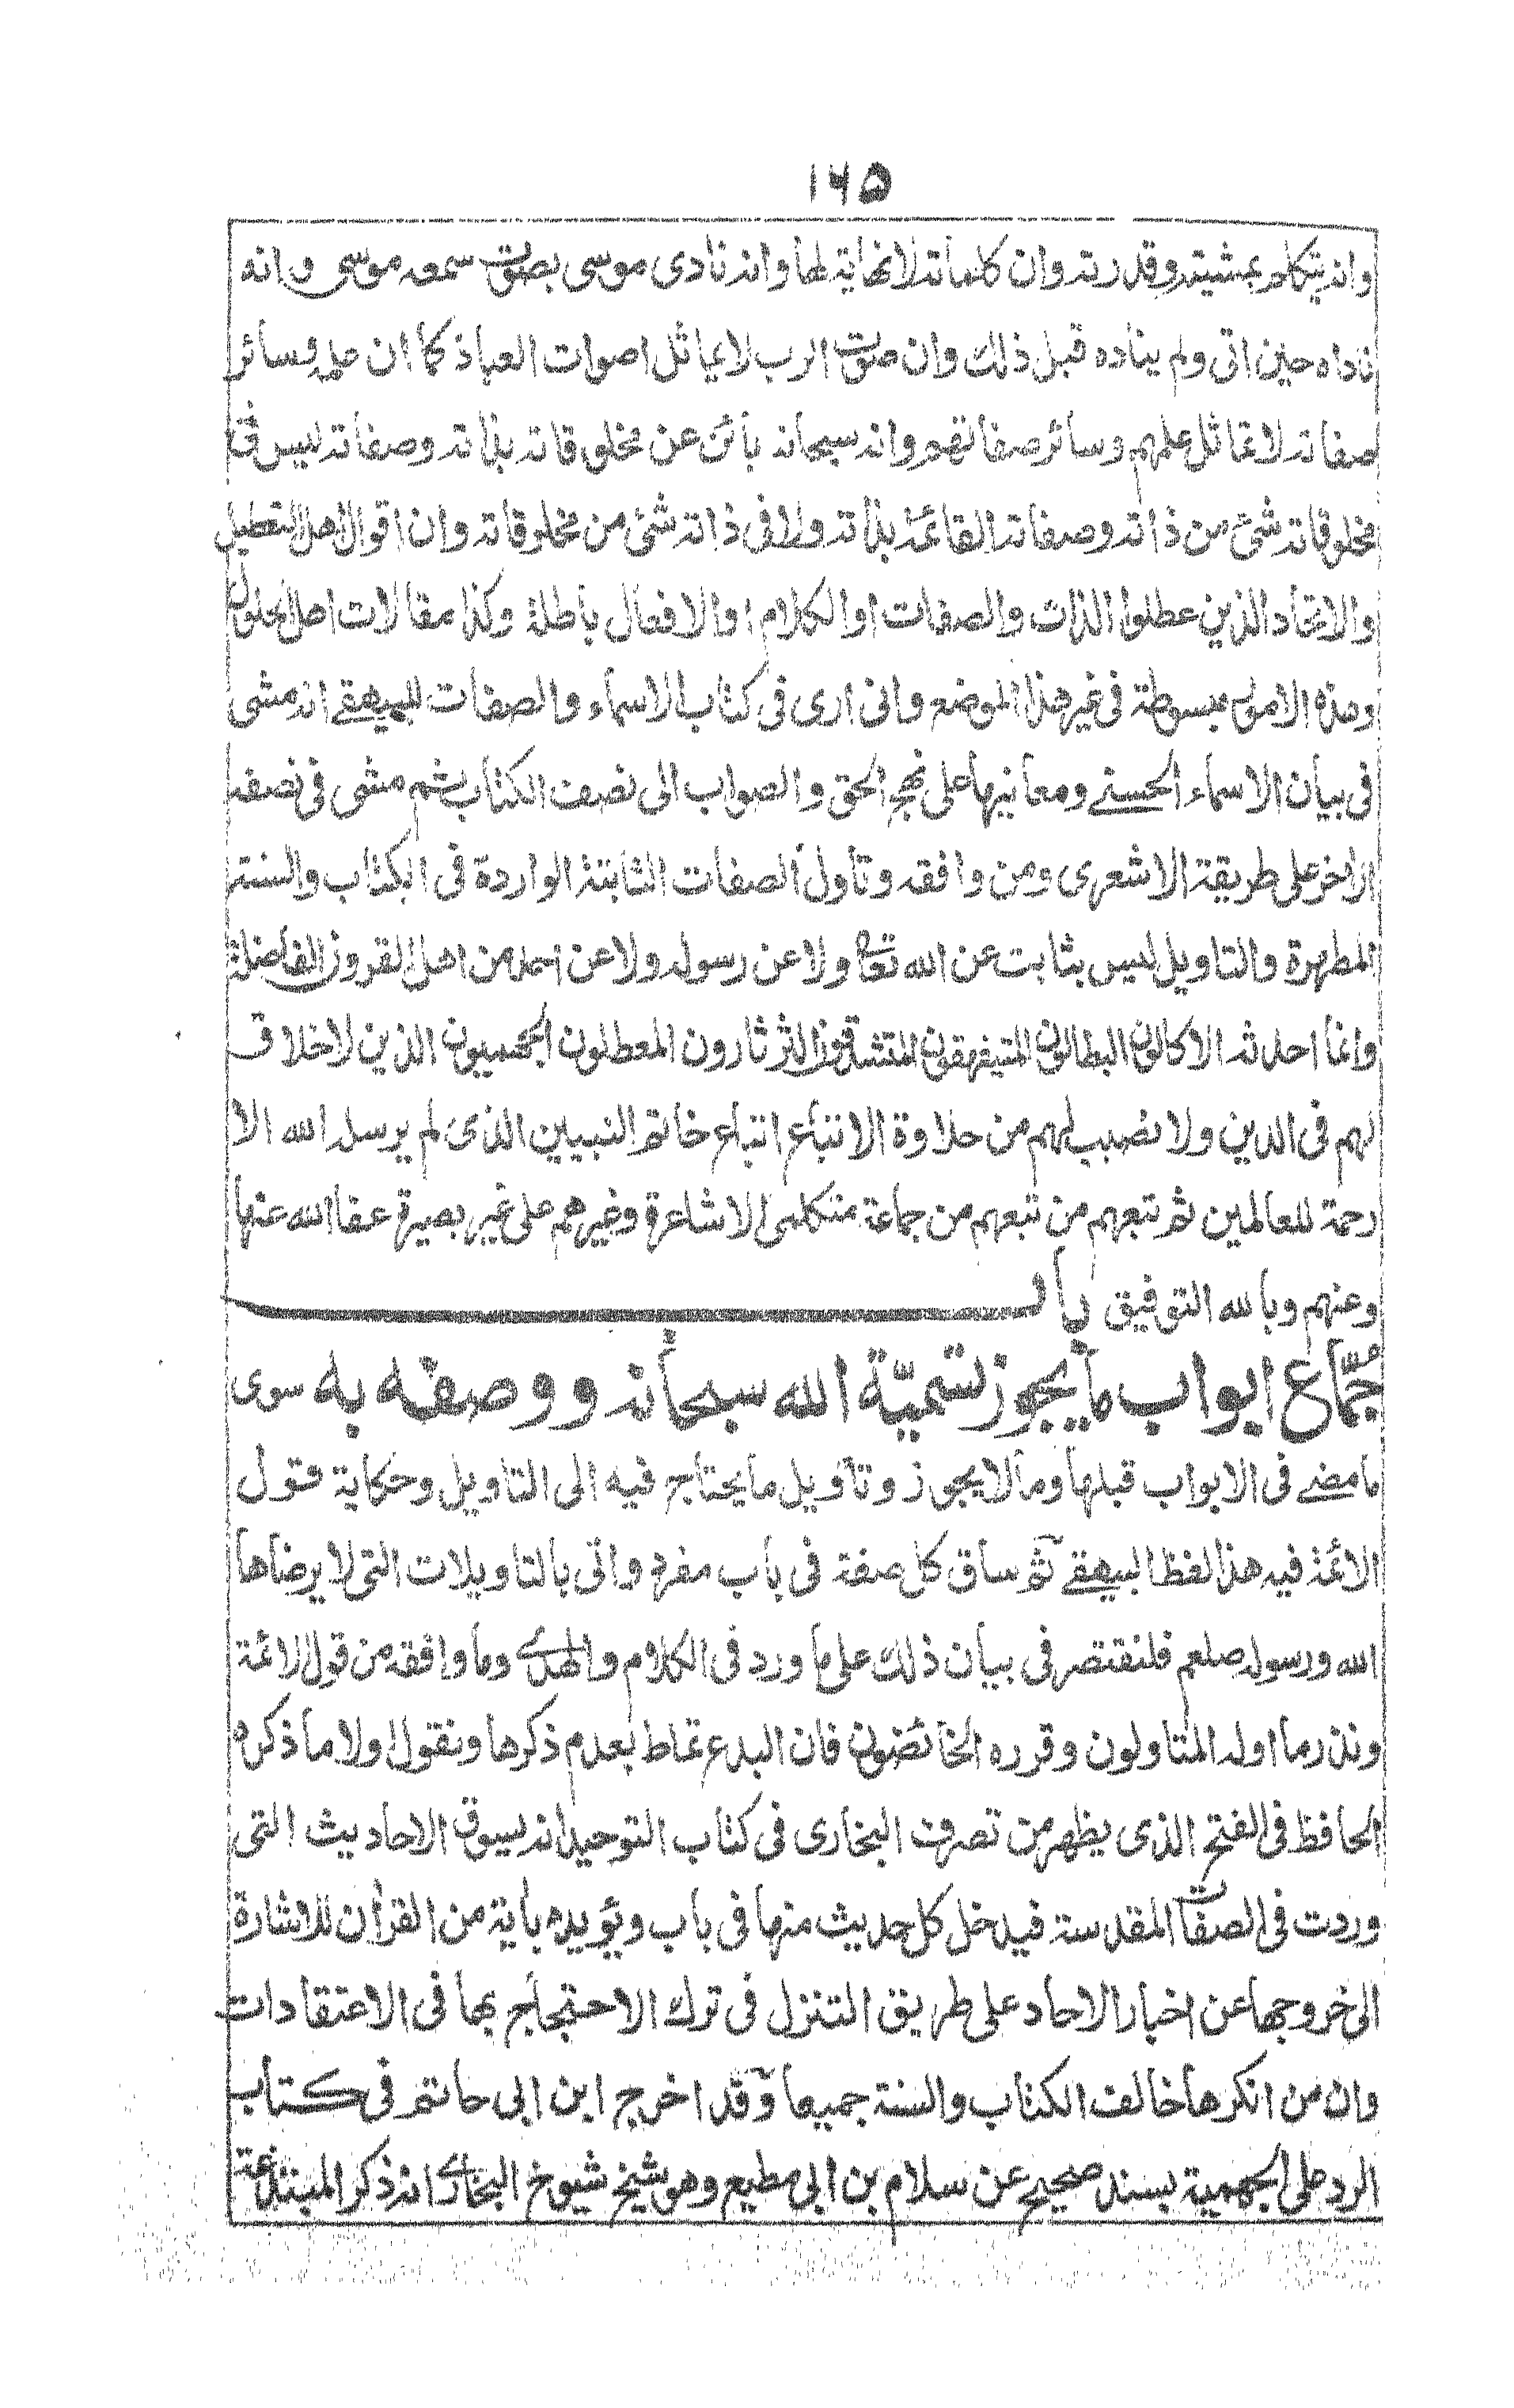 ١٦٥
وانه يتكلم بمشيته وقدرته وان كلماته لانهاية لها وانه نادى موسى بصوت سمعه موسى وانه
ناداه حين اتى ولم يناده قبل ذلك وان صوت الرب لايماثل اصوات العباد كما ان علمه وسائر
صفاته لاتماثل علمهم وسائر صفاتهم وانه سبحانه بائن عن مخلوقاته بذاته وصفاته ليس فى
مخلوقاته شئ من ذاته وصفاته القائمة بذاته ولا فى ذاته شئ من مخلوقاته وان اقوال اهل التعطيل
والاتحاد الذين عطلوا الذات والصفات او الكلام او الافعال باطلة وكذا مقالات اهل الحلول
وهذه الامور مبسوطة فى غير هذا الموضع وانى ارى فى كتاب الاسماء والصفات للبيهقے انه مشى
فى بيان الاسماء الحسنے ومعانيها على نهج الحق والصواب الى نصف الكتاب ثم مشى فى نصفه
الاخر على طريقة الاشعرى ومن وافقه وتأول الصفات الثابتة الواردة فى الكتاب والسنة
المطهرة والتاويل ليس بثابت عن الله تعا ولا عن رسوله ولا عن احد من اهل القرون الفاضلة
وانما احدثه الاكالون البطالون المتيفهقون المتشدقون الثرثارون المعطلون الجهميون الذين لاخلاق
لهم فى الدين ولا نصيب لهم من حلاوة الاتباع اتباع خاتم النبيين الذى لم يرسله الله الا
رحمة للعالمين ثم تبعهم من تبعهم من جماعة متكلمى الاشاعرة وغيرهم على غير بصيرة عفا الله عنها
وعنهم وبالله التوفيق باب
جُمّاع ابواب مايجوز تسميّة الله سبحانه و وصفه به سوى
مامضے فى الابواب قبلها وما لايجوز وتاويل مايحتاج فيه الى التاويل وحكاية قول
الائمة فيه هذا لفظ البيهقے ثم ساق كل صفة فى باب مفرد واتى بالتاويلات التى لايرضاها
الله ورسوله صلعم فلنقتصر فى بيان ذلك على ما ورد فى الكلام والهدے وما وافقه من قول الائمة
ونذر ما اوله المتاولون وقرره الخائضون فان البدع تماط بعدم ذكرها ونقول اولا ما ذكره
الحافظ فى الفتح الذى يظهر من تصرف البخارى فى كتاب التوحيد انه يسوق الاحاديث التى
وردت فى الصفات المقدسة فيدخل كل حديث منها فى باب ويؤيده بأية من القرأن للاشارة
الى خروجها عن اخبار الاحاد على طريق التنزل فى ترك الاحتجاج بها فى الاعتقادات
وان من انكرها خالف الكتاب والسنة جميعا وقد اخرج ابن ابى حاتم فى كتاب
الرد على الجهمية بسند صحيح عن سلام بن ابى مطيع وهو شيخ شيوخ البخارے انه ذكر المبتدعة